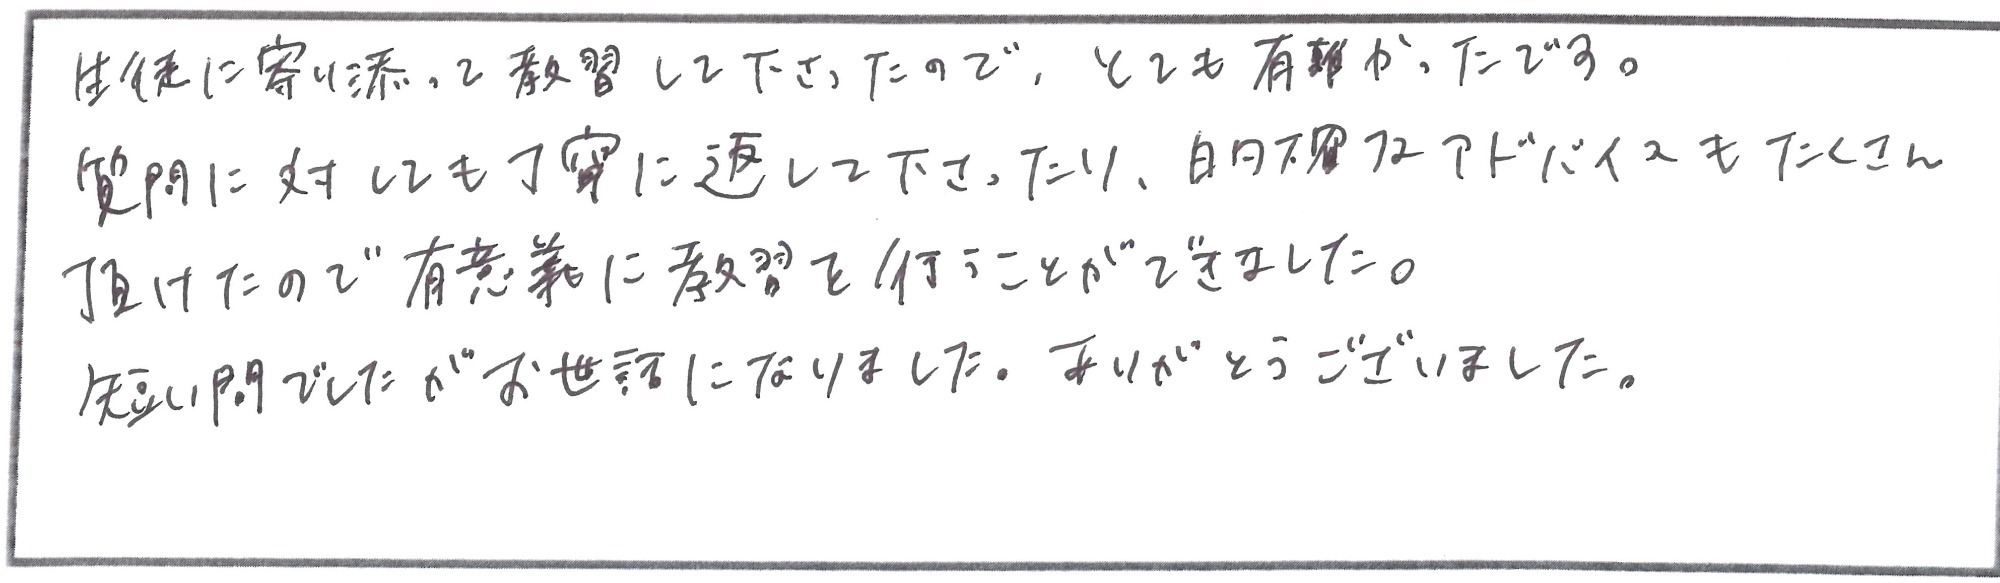 生徒に寄り添って教習して下さったので、とても有難かったです。
質問に対しても丁寧に返して下さったり、的確なアドバイスもたくさん
頂けたので有意義に教習を行うことができました。
短い間でしたがお世話になりました。ありがとうございました。